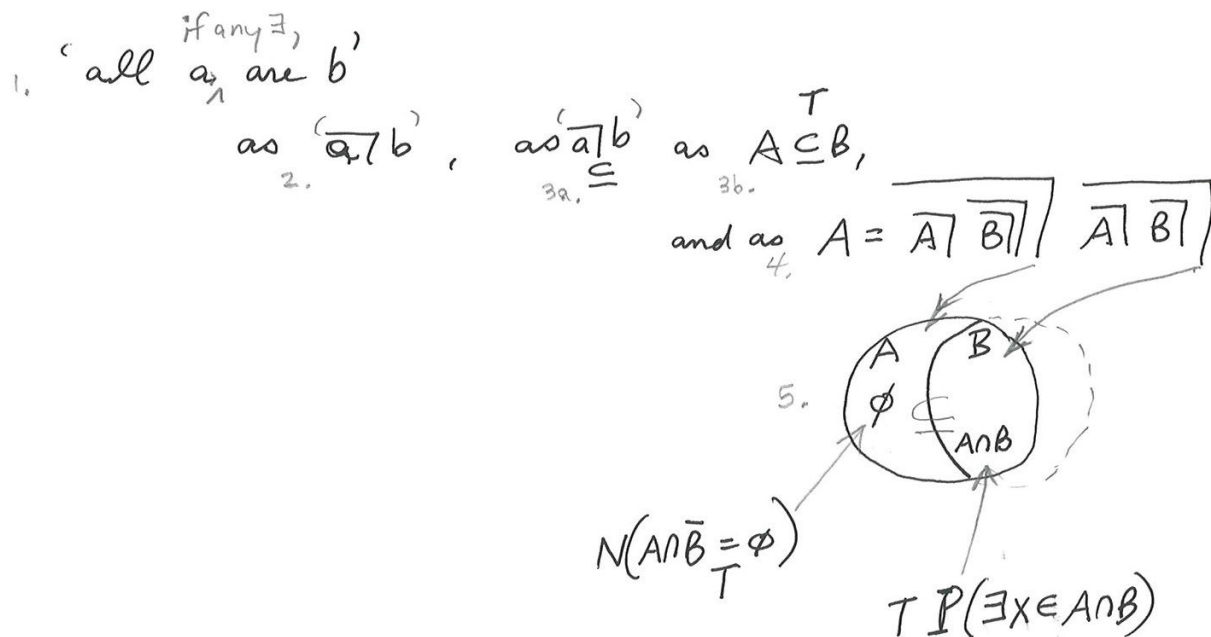 if any ∃,
1. ‘all a, are b’
as ‘a̅⏋b’, as ‘a̅⏋b’ as A ⊆ B,
2. 3a. ⊆ 3b. T
and as A = A̅⏋ B̅⏋⏋⏋ A̅⏋ B̅⏋⏋
4.
A B
5. ϕ ⊆
A∩B
N(A∩B̅ = ϕ)
T
T P(∃x ∈ A∩B)